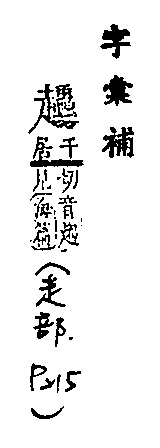 字彙補
千居
切音趄
見海篇
(走部.
P215)